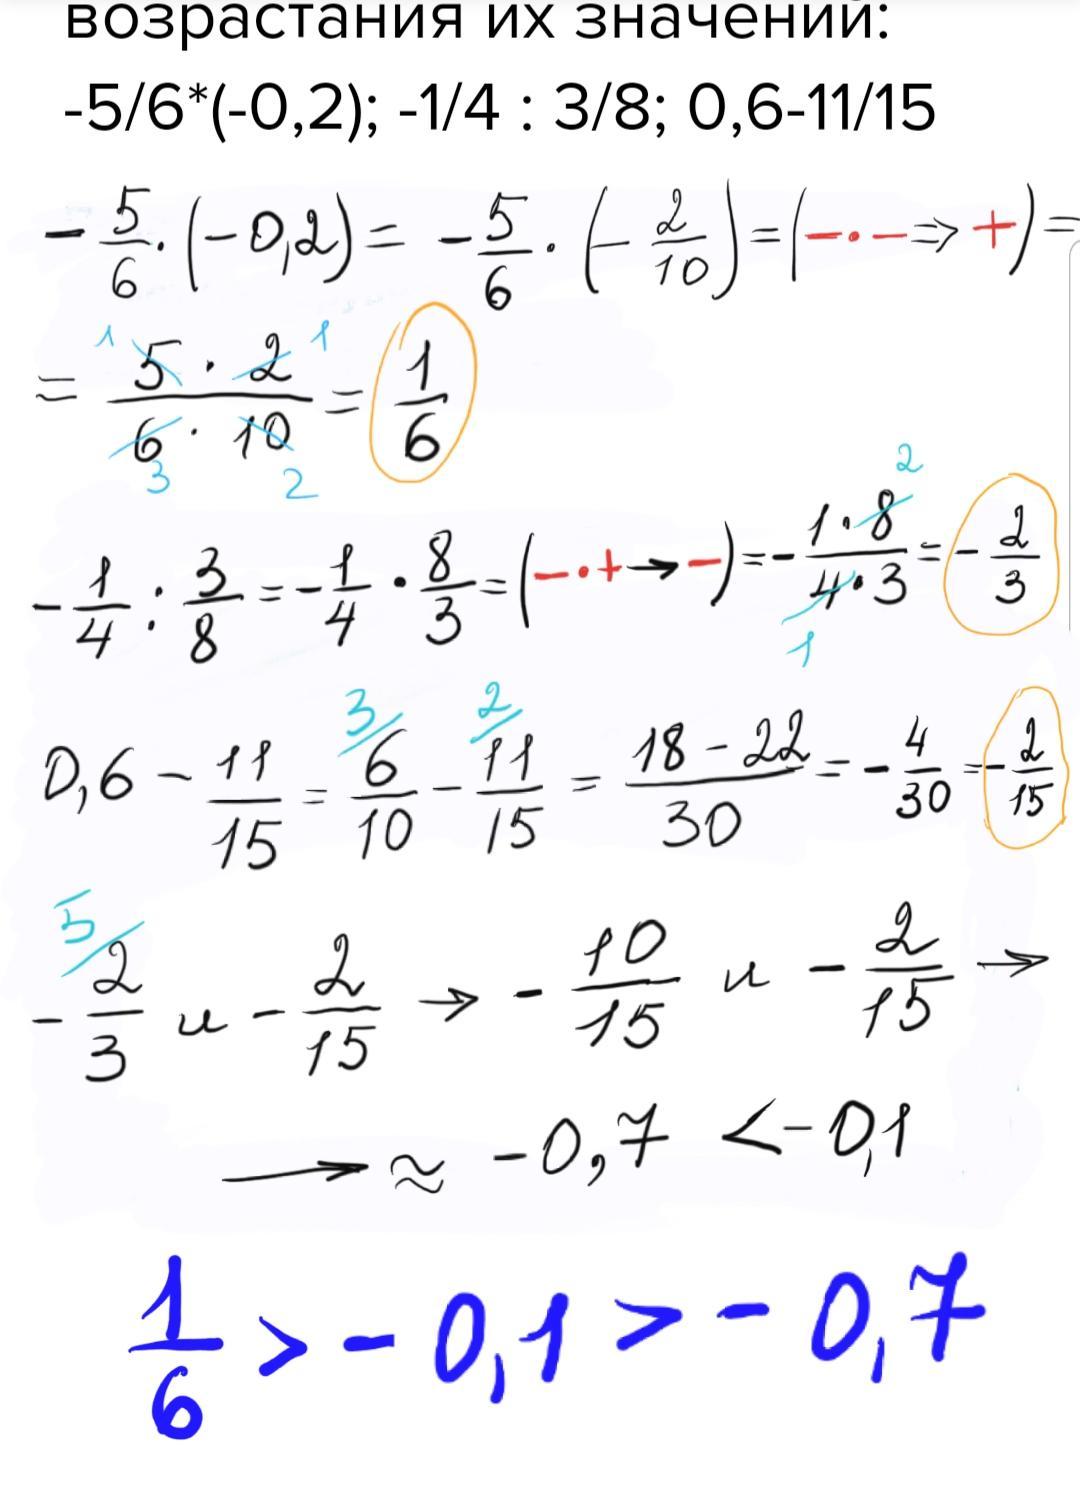 возрастания их значений:
-5/6*(-0,2); -1/4 : 3/8; 0,6-11/15
- 5/6 · (-0,2) = - 5/6 · (- 2/10) = (- · - ⇒ +) =
= 5 · 2 / 6 · 10 = 1/6
1 1 3 2
- 1/4 : 3/8 = - 1/4 · 8/3 = (- · + → -) = - 1 · 8 / 4 · 3 = - 2/3
2 1
0,6 - 11/15 = 3/ 6/10 - 2/ 11/15 = 18 - 22 / 30 = - 4/30 = - 2/15
5/ - 2/3 и - 2/15 → - 10/15 и - 2/15 →
→ ≈ -0,7 < -0,1
1/6 > -0,1 > -0,7